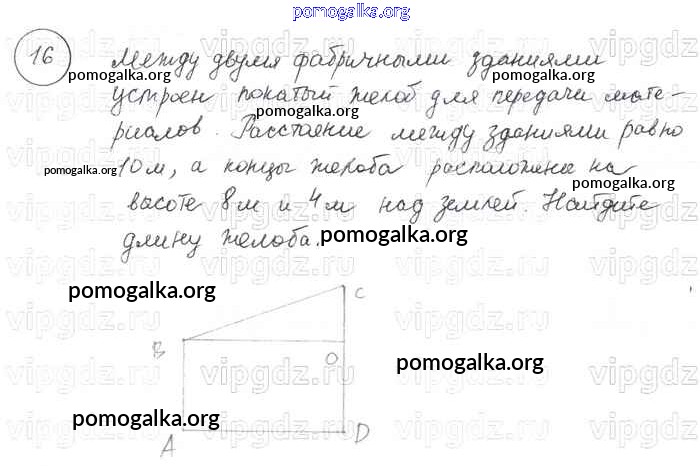 pomogalka.org
16 Между двумя фабричными зданиями
pomogalka.org
устроен покатый желоб для передачи мате-
pomogalka.org
риалов. Расстояние между зданиями равно
pomogalka.org 10 м, а концы желоба расположены на
pomogalka.org
высоте 8 м и 4 м над землей. Найдите
длину желоба. pomogalka.org
pomogalka.org
C
B
O
pomogalka.org
pomogalka.org
A D
vipgdz.ru